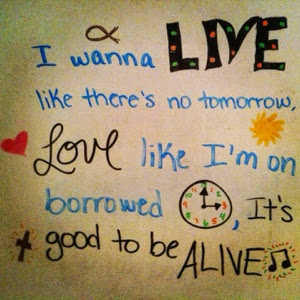 I wanna LIVE
like there's no tomorrow,
Love like I'm on
borrowed , It's
good to be ALIVE